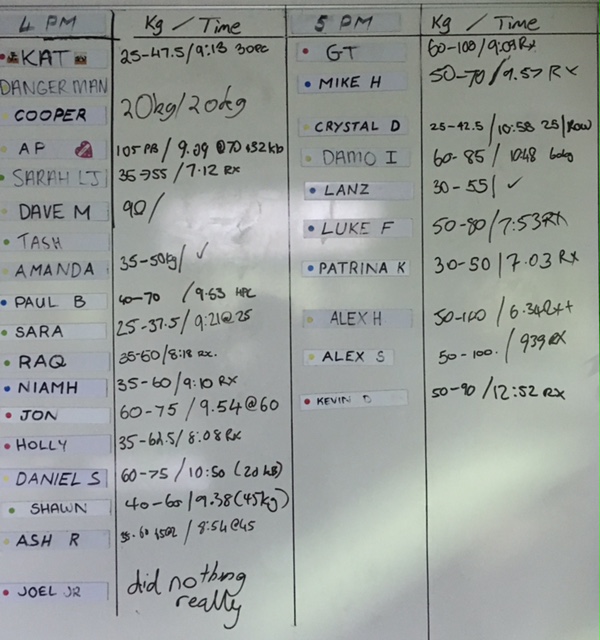 4 PM Kg / Time
KAT 25-47.5/9:13
DANGERMAN
COOPER 20kg/20deg
AP 105 PB / 9.09 @70
SARAH LJ 35->55 / 7.12 RX
DAVE M 90/
TASH
AMANDA 35-50kg/ ✓
PAUL B 40-70 / 9.53 HPC
SARA 25-37.5/9:21@25
RAQ 35-60/8:18 RX.
NIAMH 35-60/9:10 RX
JON 60-75 / 9.54 @60
HOLLY 35-62.5/ 8:08 RX
DANIEL S 60-75 / 10:50 (20 kg)
SHAWN 40-60/9.38(45kg)
ASH R 35-60 / 8:54@45
JOEL JR did nothing
really
5 PM Kg / Time
GT 60-100/9:09 RX
MIKE H 50-70/9.57 RX
CRYSTAL D 25-42.5 /10:58 25/Row
DAMO I 60-85/ 1048 60kg
LANZ 30-55/ ✓
LUKE F 50-80/7:53RX
PATRINA K 30-50/7.03 RX
ALEX H 50-100 / 6.34RX+
ALEX S 50-100. / 939 RX
KEVIN D 50-90/12:52 RX